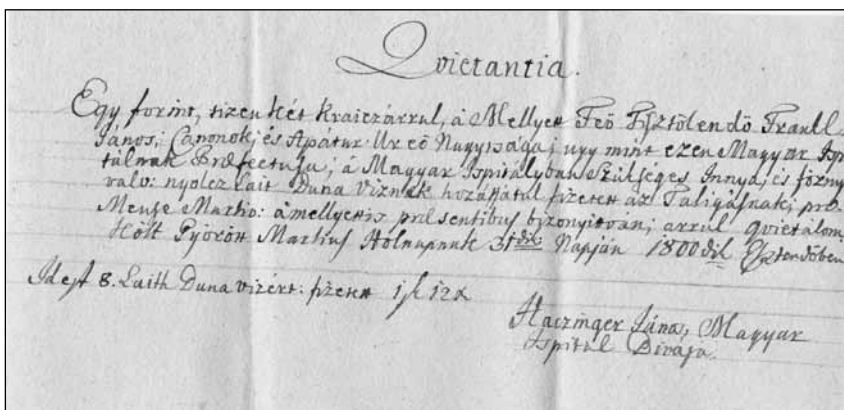 Qvietantia.
Egy forint, tizen két Kraiczárrul, á Mellyen Feö Tisztölendö Frankl
János; Canonok; és Apátur: Ur eö Nagysága; ugy mint ezen Magyar Ispi
tálnak Præfectusa; á Magyar Ispitályban Szükséges Innya, és fözny
valo: nyolcz Lait Duna Viznek hozássátul fizetett az Taligásnak; pro
Mense Martio: á mellyennis præsentibus bizonyitván; arrul qvietálom
Költ Györön Martius Holnapnak 31dik Napján 1800dik Esztendöben
Idest 8. Laith Duna vizért: fizetett 1 f 12 x
Haczinger János, Magyar
Ispitál Birája.